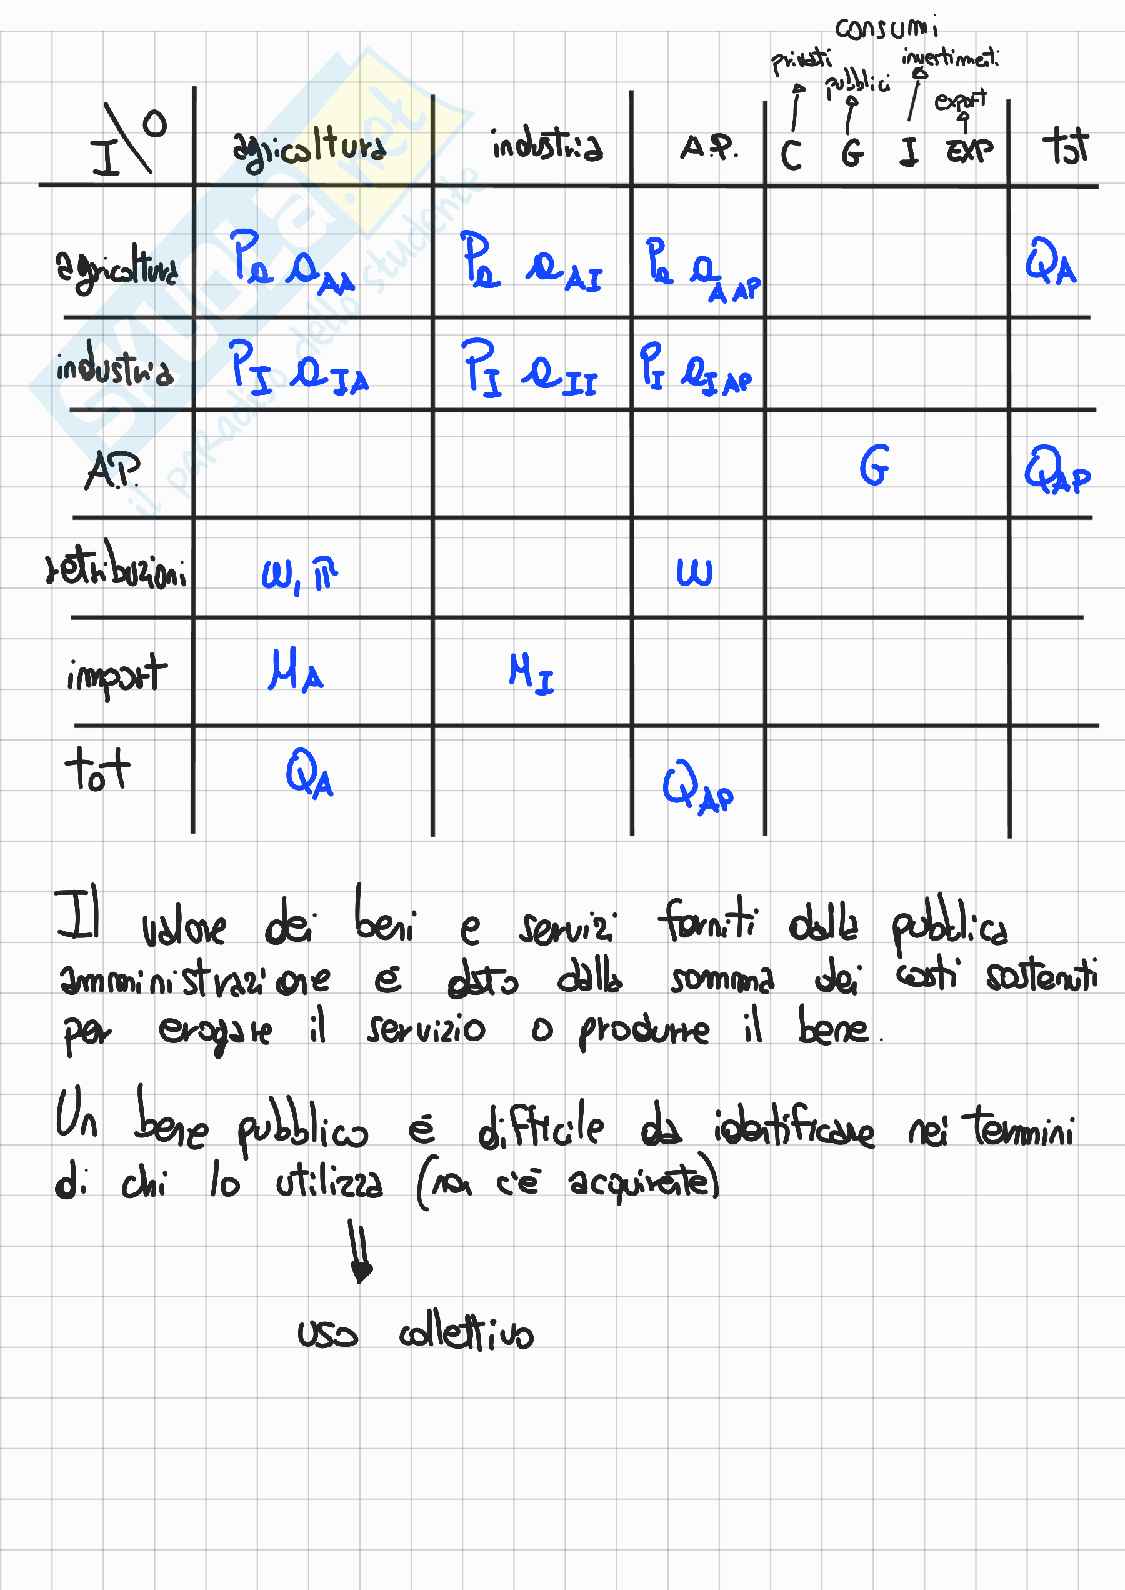 consumi
privati pubblici investimenti export
I\O agricoltura industria A.P. C G I EXP tot
agricoltura Pa aAA Pa aAI Pa aAAP QA
industria PI aIA PI aII PI aIAP
A.P. G QAP
retribuzioni w, π w
import MA MI
tot QA QAP
Il valore dei beni e servizi forniti dalla pubblica
amministrazione è dato dalla somma dei costi sostenuti
per erogare il servizio o produrre il bene.
Un bene pubblico è difficile da identificare nei termini
di chi lo utilizza (non c'è acquirente)
uso collettivo
SKUOLA.net
il paradiso dello studente